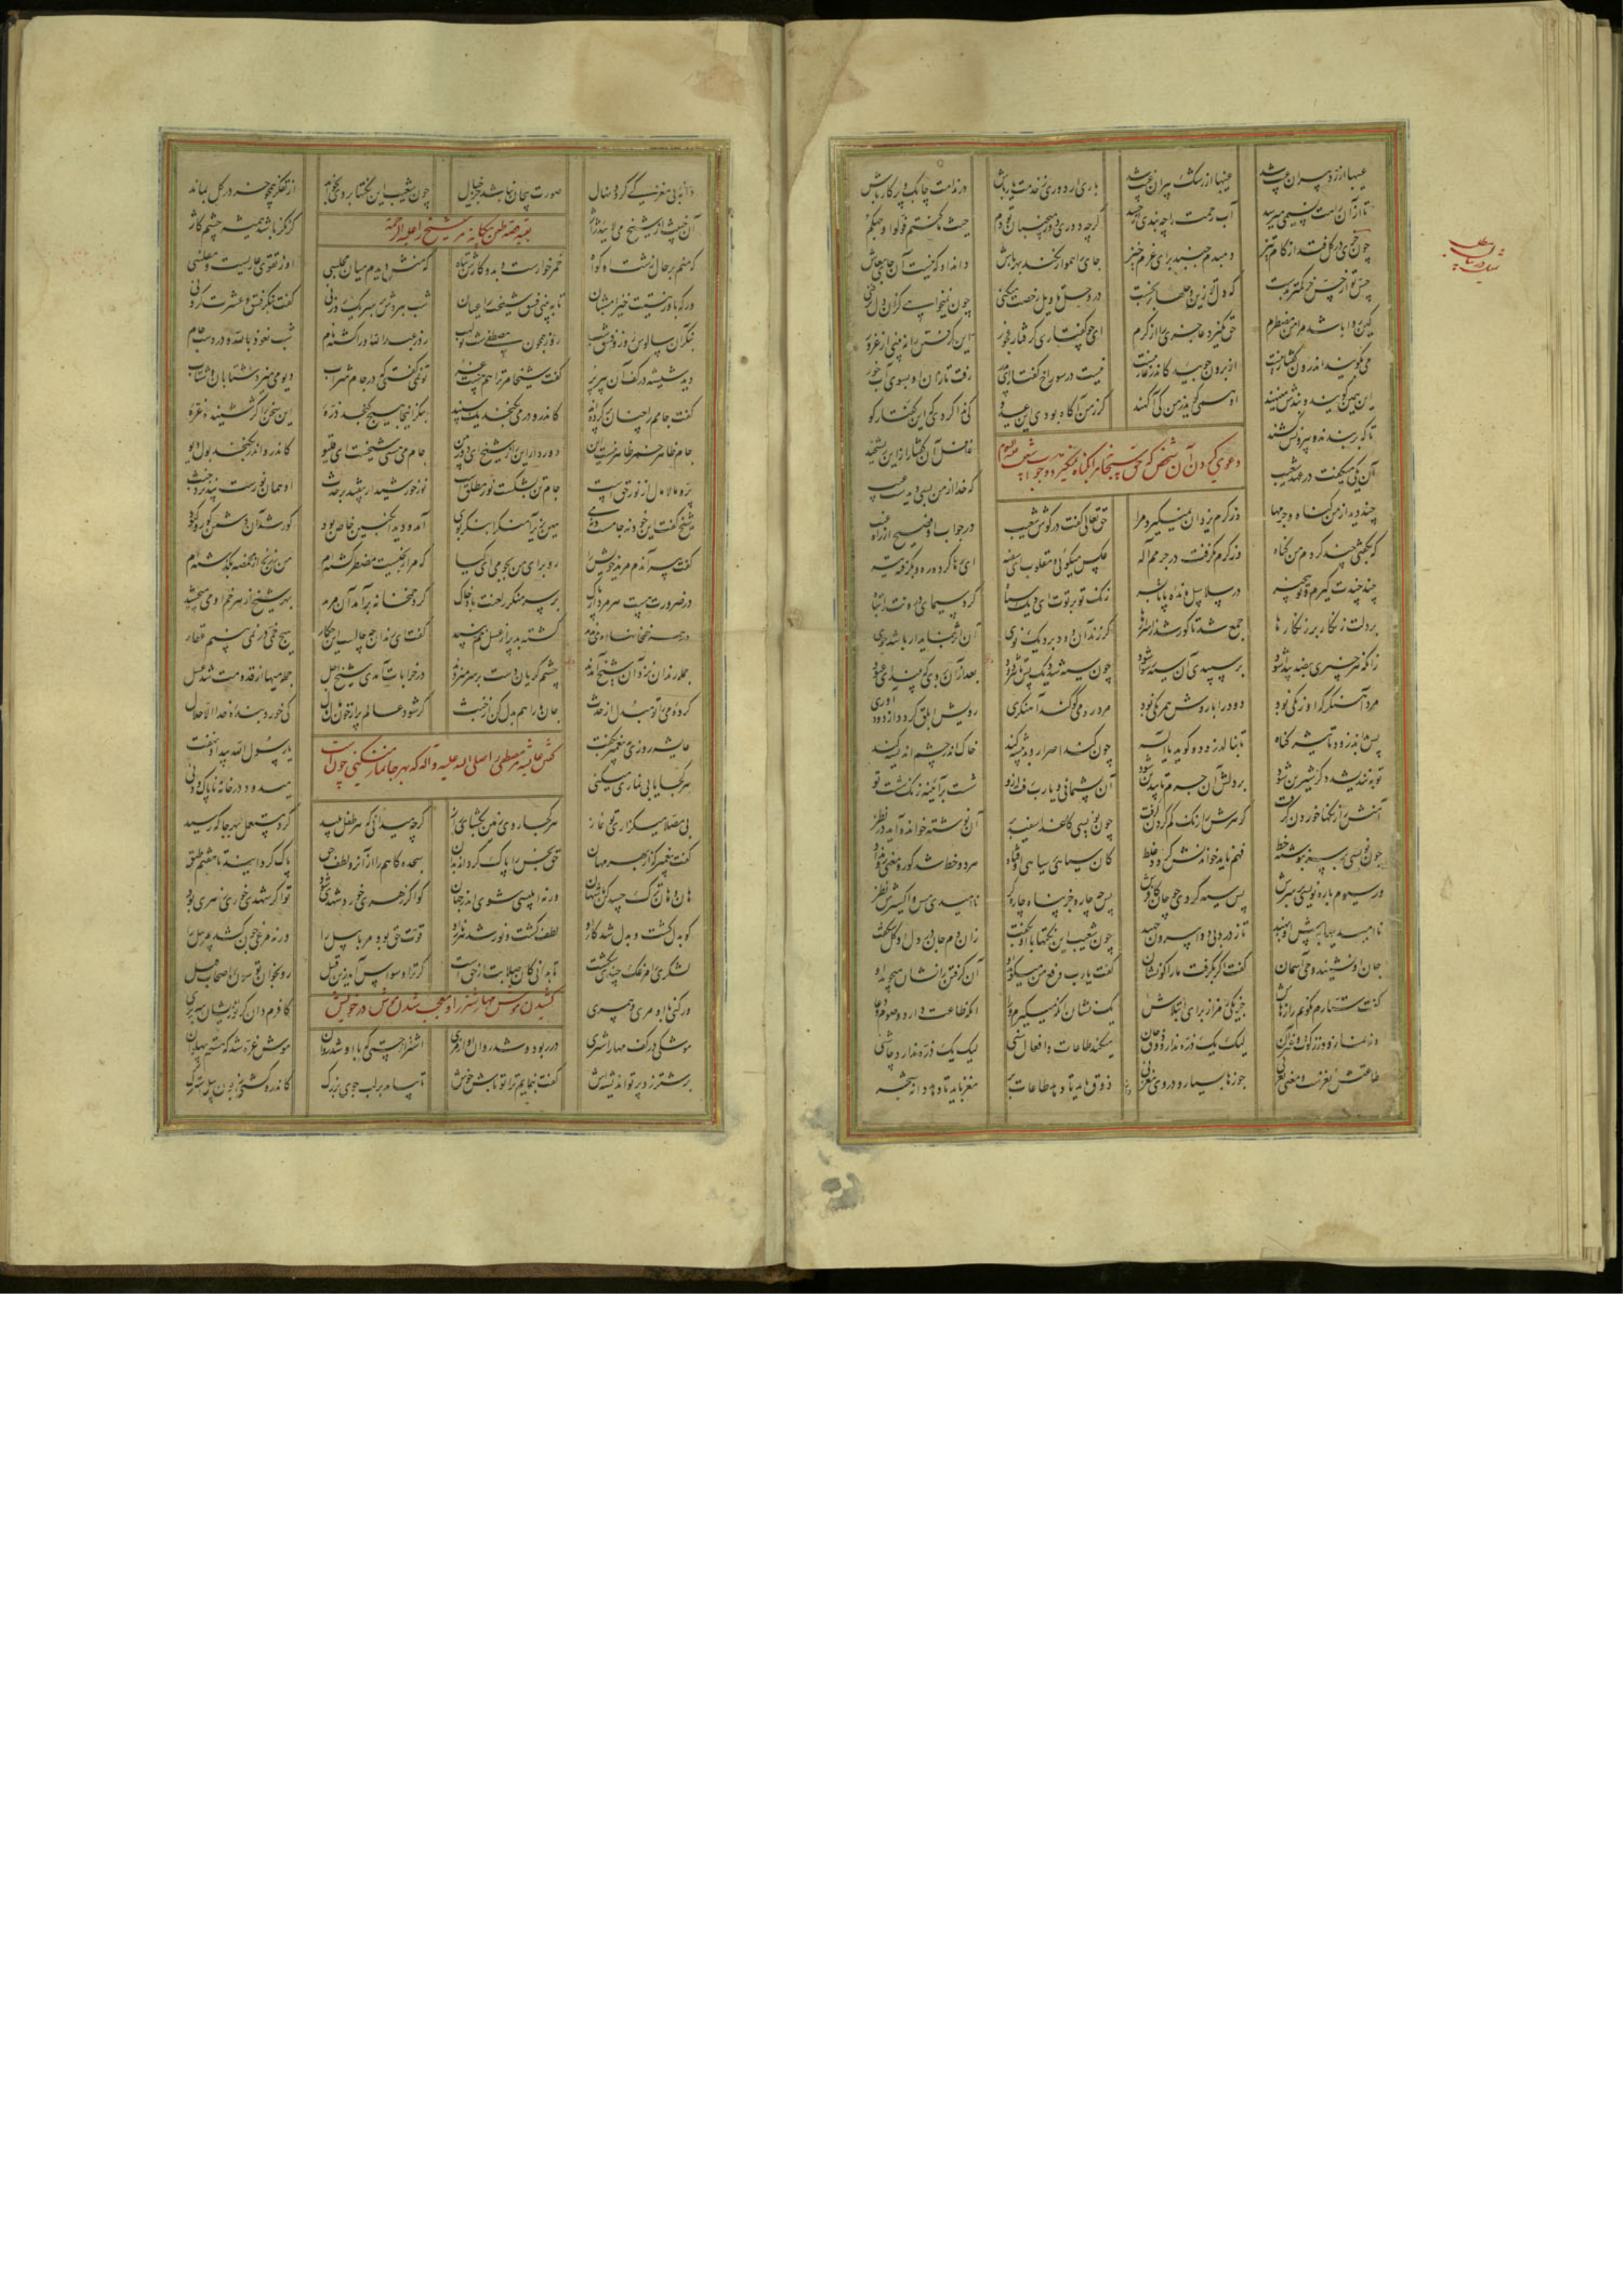 عیبها از رد پیران عیب شد عیبها از رشک پیران غیب شد باری ار دوری ز خدمت یار باش در ندامت چابک و پر کار باش
تا از آن راهت نسیمی میرسد آب رحمت را چه بندی از حسد گرچه دوری دور می جنبان تو دم حیث ما کنتم فولوا وجهکم
چون خری در گل فتد از گام تیز دمبدم جنبد برای عزم خیز جای را هموار نکند بهر باش داند او که نیست آن جای معاش
حس تو از حس خر کمتر بدست که دل تو زین وحلها بر نجست در وحل تاویل رخصت میکنی چون نمیخواهی کزان دل بر کنی
کین روا باشد مرا من مضطرم حق نگیرد عاجزی را از کرم ای چو کفتاری گرفتار فجور این گرفتن را نبینی از غرور
می گویند اندرون کفتار نیست از برون جویید کاندر غار نیست نیست در سوراخ کفتار ای پسر رفت تازان او بسوی آب خور
این همی گویند و بندش مینهند او همی گوید ز من کی آگهند گر ز من آگاه بودی این عدو کی ندا کردی که این کفتار کو
تا که بر بندند و بیرونش کشند غافل آن کفتار ازین ریشخند
دعوی کردن آن شخص که حق تعالی مرا بگناه نمیگیرد و جواب شعیب
آن یکی میگفت در عهد شعیب که خدا از من بسی دیدست عیب
چند دید از من گناه و جرمها وز کرم یزدان نمیگیرد مرا حق تعالی گفت در گوش شعیب در جواب او فصیح از راه غیب
که بگفتی چند کردم من گناه وز کرم نگرفت در جرمم اله عکس میگوئی و مقلوب ای سفیه ای رها کرده ره و بگرفته تیه
چند چندت گیرم و تو بیخبر در سلاسل مانده پا تا بسر زنگ تو بر توت ای دیگ سیاه کرد سیمای درونت را تباه
بر دلت زنگار بر زنگارها جمع شد تا کور شد ز اسرارها گر زند آن دود بر دیگ نوی آن اثر بنماید ار باشد جوی
زانکه هر چیزی بضد پیدا شود بر سپیدی آن سیه رسوا شود چون سیه شد دیگ پس تاثیر دود بعد ازان بر وی که بیند
مرد آهنگر که او زنگی بود دود را با روش همرنگی بود مرد رومی کو کند آهنگری رویش ابلق گردد از دود آوری
پس بداند زود تاثیر گناه تا بنالد زود و گوید یا اله چون کند اصرار و بد پیشه کند خاک اندر چشم اندیشه کند
توبه نندیشد دگر شیرین شود بر دلش آن جرم تا بیدین شود آن پشیمانی و یارب رفت ازو شست بر آئینه زنگ شست تو
آهنش را زنگها خوردن گرفت گوهرش را زنگ کم کردن گرفت چون نویسی کاغذ اسفید بر آن نوشته خوانده آید در نظر
چون نویسی بر سر بنوشته خط فهم ناید خواندنش گردد غلط کان سیاهی بر سیاهی اوفتاد هر دو خط شد کور و معنی نداد
ور سیوم باره نویسی بر سرش پس سیه کردی چو جان کافرش پس چه چاره جز پناه چاره گر ناامیدی مس و اکسیرش نظر
ناامیدیها بپیش او نهید تا ز درد بی دوا بیرون جهید چون شعیب این نکتها با او بگفت زان دم جان در دل او گل شکفت
جان او بشنید وحی آسمان گفت اگر بگرفت ما را کو نشان گفت یارب دفع من میگوید او آن گرفتن را نشان میجوید او
گفت ستارم نگویم رازهاش جز یکی رمز از برای ابتلاش یک نشان آنکه میگیرم ورا آنکه طاعت دارد و صوم و دعا
وز نماز و از زکوة و غیر آن لیک یک ذره ندارد ذوق جان میکند طاعات و افعال سنی لیک یک ذره ندارد چاشنی
طاعتش نغزست و معنی نغز نی جوزها بسیار و در وی مغز نی ذوق باید تا دهد طاعات بر مغز باید تا دهد دانه شجر
دانه بی مغز کی گردد نهال صورت بیجان نباشد جز خیال چون شعیب این نکتها بر وی بخواند از تفکر همچو خر در گل بماند
بقیه قصه طعن بیگانه مر شیخ را علیه الرحمة
آن خبیث از شیخ می لائید ژاژ کژنگر باشد همیشه چشم کاژ
که منم بر حال زشت او گواه خمر خوارست و بد و کارش تباه که منش دیدم میان مجلسی او ز تقوی عاریست و مفلسی
ور که باور نیستت خیز امشبان تا به بینی فسق شیخت را عیان شب ببردش بر سر یک روزنی گفت بنگر فسق و عشرت کردنی
بنگر آن سالوس روز و فسق شب روز همچون مصطفی شب بولهب روز عبدالله او را گشته نام شب نعوذ بالله و در دست جام
دید شیشه در کف آن پیر پر گفت شیخا مر ترا هم هست غر تو نمی گفتی که در جام شراب دیو می میزد شتابان و شتاب
گفت جامم را چنان پر کرده اند کاندرو در می نگنجد یک سپند بنگر اینجا هیچ گنجد ذره این سخن را کژ شنیده غره
جام ظاهر خمر ظاهر نیست این دور دار این را ز شیخ ای دوربین جام می هستی شیخست ای فلیو کاندرو اندر نگنجد بول دیو
پر و مالامال از نور حق است جام تن بشکست نور مطلق است نور خورشید ار بیفتد بر حدث او همان نورست نپذیرد خبث
شیخ گفت این خود نه جامست و نه می هین بزیر آ منکرا بنگر بوی آمد و دید انگبین خاص بود کور شد آن دشمن کور و کبود
گفت پیر آندم مرید خویش را رو برای من بجو می ای کیا که مرا رنجیست مضطر گشته ام من ز رنج از مخمصه بگذشته ام
در ضرورت هست هر مردار پاک بر سر منکر ز لعنت باد خاک گرد خمخانه بر آمد آن مرید بهر شیخ از هر خمی او می چشید
در همه خمخانها او می ندید گشته بد پر از عسل خم نبید گفت ای رندان چه حالست این چه کار هیچ خمی در نمی بینم عقار
جمله رندان نزد آن شیخ آمدند چشم گریان دست بر سر میزدند در خرابات آمدی شیخ اجل جمله میها از قدومت شد عسل
کرده می را تو مبدل از حدث جان ما را هم بدل کن از خبث گر شود عالم پر از خون مال مال کی خورد بنده خدا الا حلال
گفتن عایشه مر مصطفی را صلی الله علیه و آله که بهر جا نماز میکنی چون است
عایشه روزی به پیغمبر بگفت یا رسول الله پیدا و نهفت
هر کجا یابی نمازی میکنی میدود در خانه ناپاک و دنی
بی مصلا میگزاری تو نماز هر کجا روی زمین بگشای راز گرچه میدانی که هر طفل پلید کرد مستعمل بهر جا که رسید
گفت پیغمبر که از بهر مهان حق نجس را پاک گرداند بدان سجده گاهم را از آن رو لطف حق پاک گردانید تا هفتم طبق
هان و هان ترک حسد کن با شهان ورنه ابلیسی شوی اندر جهان کو اگر زهری خورد شهدی شود تو اگر شهدی خوری زهری بود
کو بدل گشت و بدل شد کار او لطف گشت و نور شد هر نار او قوت حق بود مر بابیل را ورنه مرغی چون کشد مر پیل را
لشکری را مرغکی چندی شکست تا بدانی کان صلابت از حق است گر ترا وسواس آید زین قبیل رو بخوان تو سوره اصحاب فیل
ور کنی با او مری و همسری کافرم دان گر تو زیشان سر بری
کشیدن موش مهار شتر را و معجب شدن موش در خویش
موشکی در کف مهار اشتری در ربود و شد روان او از مری اشتر از چستی که با او شد روان موش غره شد که هستم پهلوان
بر شتر زد پرتو اندیشه اش گفت بنمایم ترا تو باش خوش تا بیامد بر لب جوی بزرگ کاندرو گشتی زبون پیل سترگ